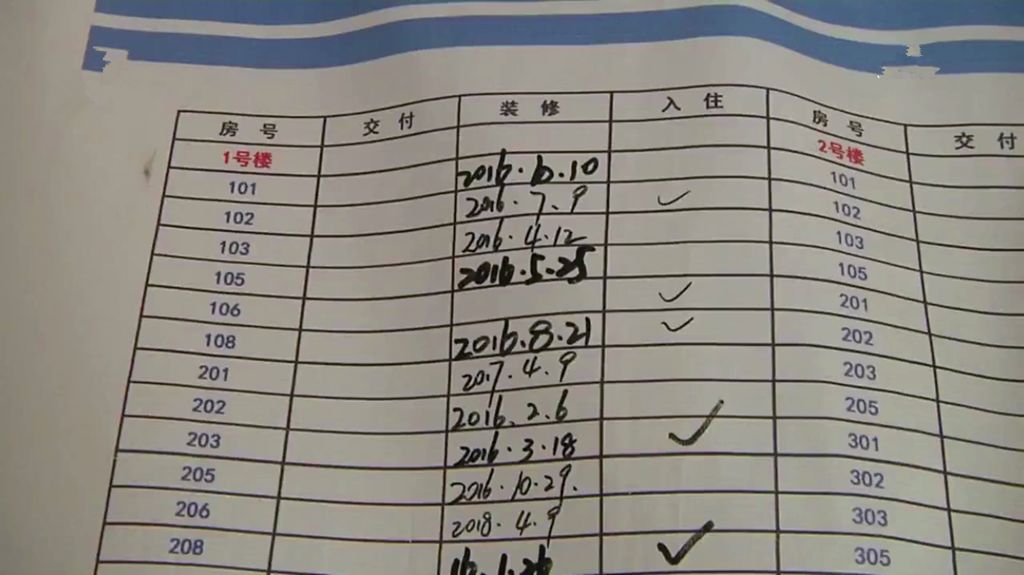 房号 交付 装修 入住 房号 交付
1号楼 2号楼
101 2016.6.10 101
102 2016.7.9 ✓ 102
103 2016.4.12 103
105 2016.5.25 105
106 ✓ 201
108 2016.8.21 ✓ 202
201 2017.4.9 203
202 2016.2.6 205
203 2016.3.18 ✓ 301
205 2016.10.29. 302
206 2018.4.9 303
208 ✓ 305